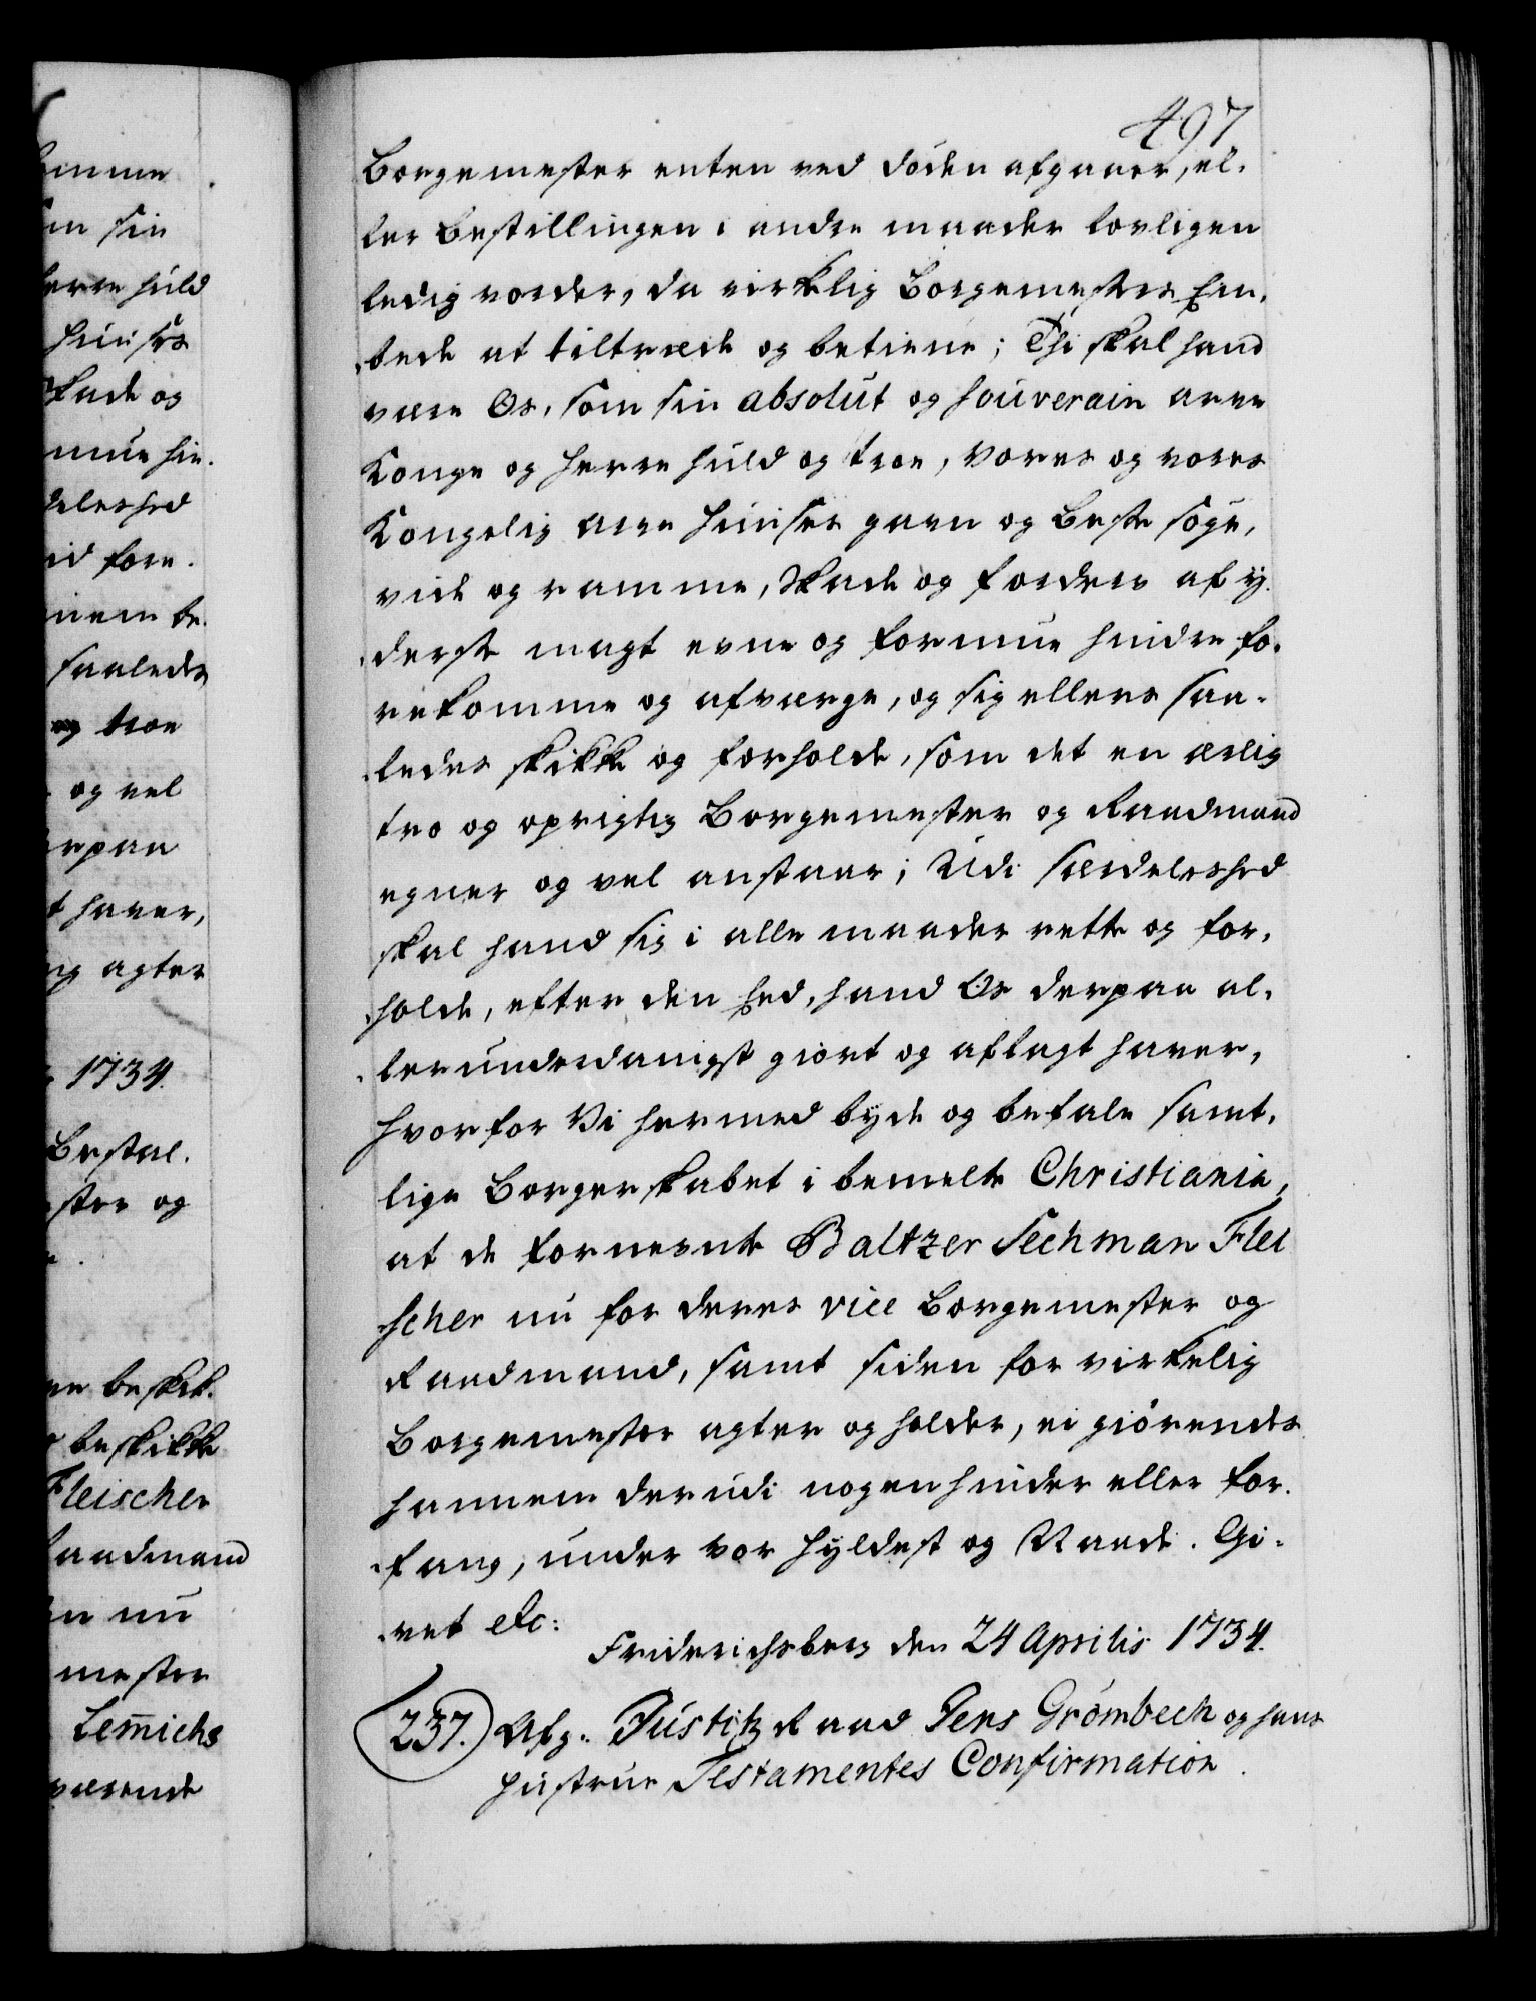 497
Borgemester enten ved döden afgaaer, el-
ler Bestillingen i andre maader lovligen
ledig vorder, da virkelig Borgemesters Em-
bede at tiltræde og betiene; Thi skal hand
være Os, som sin absolut og souverain arve
Konge og Herre huld og troe, Vores og vores
Kongelig Arve Huuses gavn og Beste söge,
vide og ramme, Skade og forderv af y-
derste magt evne og formue hindre fo-
rekomme og afværge, og sig ellers saa-
ledes skikke og forholde, som det en ærlig
tro og oprigtig Borgemester og Raadmand
egner og vel anstaaer; Udi særdeleshed
skal hand sig i alle maader rette og for-
holde, efter den Eed, hand Os derpaa al-
lerunderdanigst giort og aflagt haver,
Hvorfor Vi hermed byde og befale samt-
lige Borgerskabet i bemelte Christiania,
at de fornevnte Baltzer Sechman Flei
scher nu for deres vice Borgemester og
Raadmand, samt siden for virkelig
Borgemester agter og holder, ei giörendes
hannem derudi nogen hinder eller for-
fang, under vor Hyldest og Naade. Gi-
vet etc:
Friderichsberg den 24 Aprilis 1734.
237. Afg. Justitz Raad Jens Grömbech og hans
Hustrue Testamentes Confirmation.
emme
en sin
Herre huld
Huuses
Skade og
mue hin-
deleshed
id fore-
nem be-
saaledes
og troe
og vel
erpaa
t haver,
ig agter
1734.
Bestal-
ster og
ve beskik-
beskikke
Fleischer
Raadmand
en nu
mester
Lem̅ichs
værende